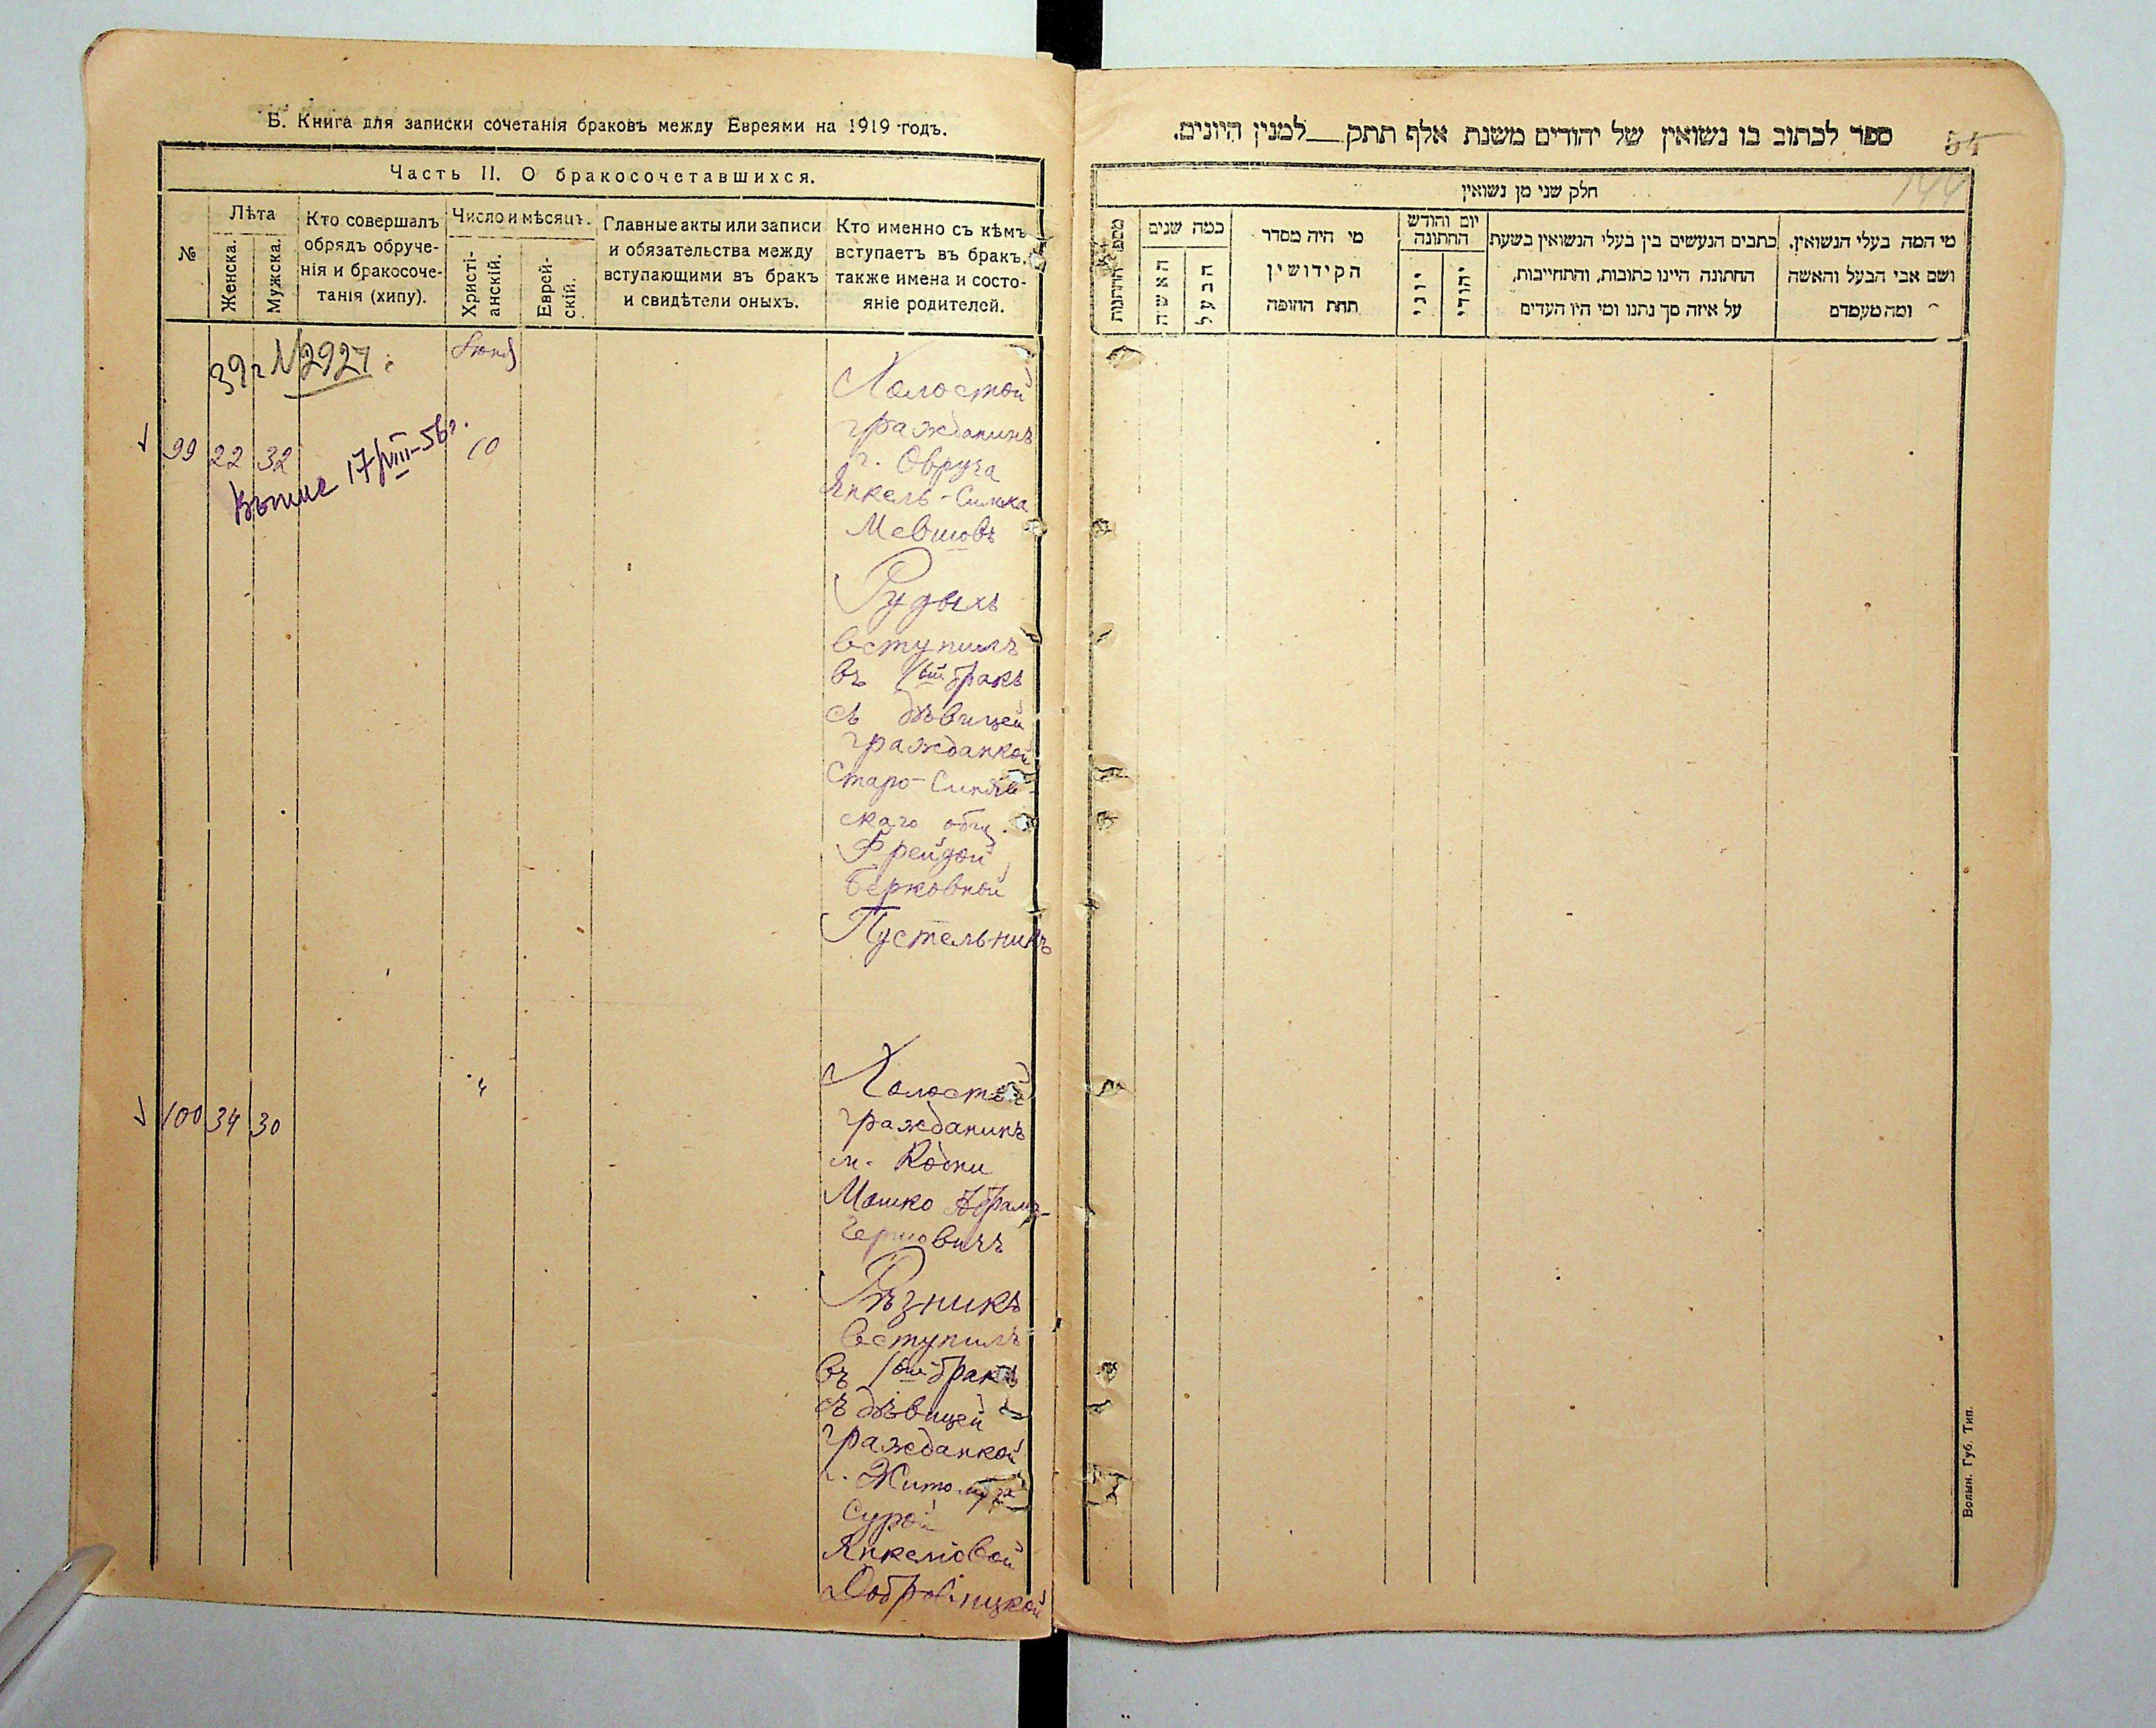 Б. Книга для записки сочетанія браковъ между Евреями на 1919 годъ.
Часть II. О бракосочетавшихся.
№
Лѣта
Женска.
Мужска.
Кто совершалъ
обрядъ обруче-
нія и бракосоче-
танія (хипу).
Число и мѣсяцъ.
Христі-
анскій.
Еврей-
скій.
Главные акты или записи
и обязательства между
вступающими въ бракъ
и свидѣтели оныхъ.
Кто именно съ кѣмъ
вступаетъ въ бракъ,
также имена и состо-
яніе родителей.
39г №2927
17/VIII-56г.
99 22 32
10
Холостой
гражданинъ
г. Овруча
Янкель-Симха
Мевшовъ
Рудыхъ
вступилъ
въ 1ый бракъ
съ дѣвицей
гражданкой
Старо-Синяв-
скаго общ.
Фрейдой
Берковной
Пустельникъ
100 34 30
"
Холостой
гражданинъ
м. Кодни
Мошко Абрамъ-
Герщовичъ
Рѣзникъ
вступилъ
въ 1ый бракъ
съ дѣвицей
гражданкой
г. Житомира
Сурой
Янкеліовой
ספר לכתוב בו נשואין של יהודים משנת אלף תתק__למנין היונים.
54
144
חלק שני מן נשואין
מי המה בעלי הנשואין,
ושם אבי הבעל והאשה
ומה מעמדם
כתבים הנעשים בין בעלי הנשואין בשעת
החתונה היינו כתובות, והתחייבות,
על איזה סך נתנו ומי היו העדים
יום וחודש
החתונה
יהודי
יוני
מי היה מסדר
הקידושין
תחת החופה
כמה שנים
הבעל
האשה
מספר החתונות
Волын. Губ. Тип.